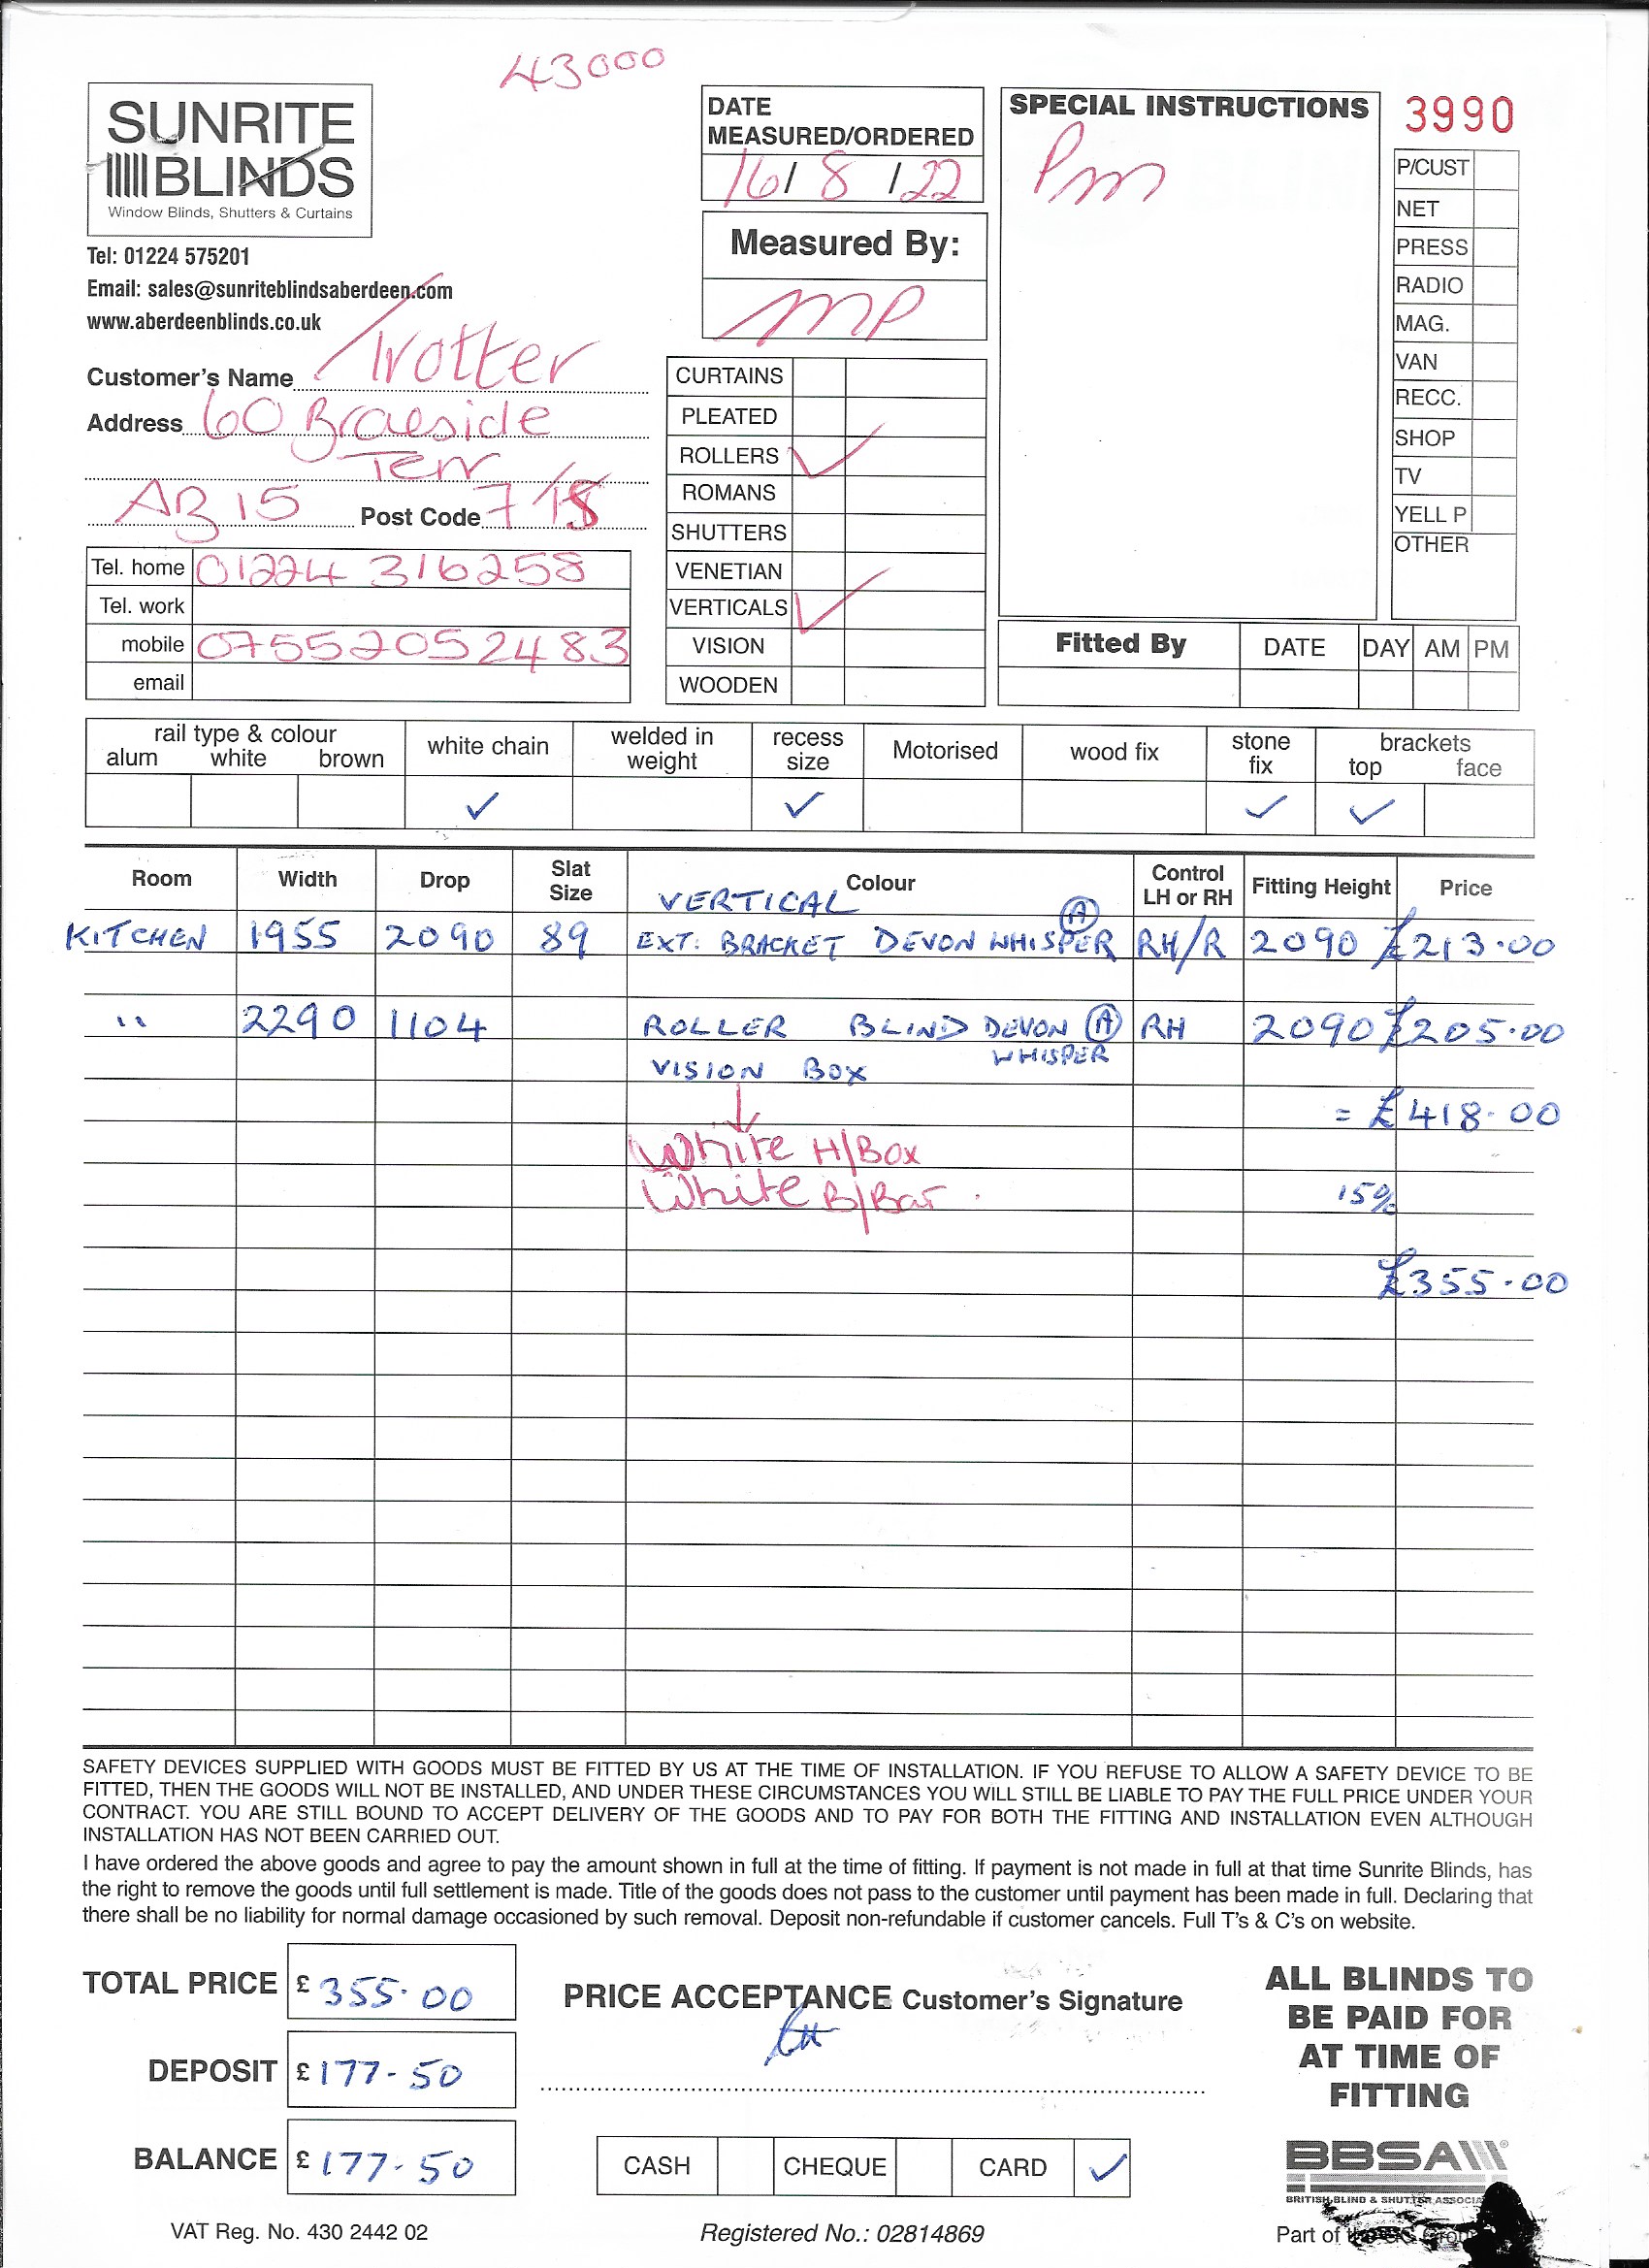 43000
SUNRITE
BLINDS
Window Blinds, Shutters & Curtains
Tel: 01224 575201
Email: sales@sunriteblindsaberdeen.com
www.aberdeenblinds.co.uk
Customer's Name Trotter
Address 60 Braeside
Terr
AB 15 Post Code 7
Tel. home 01224 316258
Tel. work
mobile 07552052483
email
DATE
MEASURED/ORDERED
16/ 8 /22
Measured By:
MP
CURTAINS
PLEATED
ROLLERS ✓
ROMANS
SHUTTERS
VENETIAN
VERTICALS ✓
VISION
WOODEN
SPECIAL INSTRUCTIONS
Pm
3990
P/CUST
NET
PRESS
RADIO
MAG.
VAN
RECC.
SHOP
TV
YELL P
OTHER
Fitted By DATE DAY AM PM
rail type & colour
alum white brown
white chain ✓
welded in
weight
recess
size ✓
Motorised
wood fix
stone
fix ✓
brackets
top ✓ face
Room Width Drop Slat Size Colour Control LH or RH Fitting Height Price
VERTICAL
KITCHEN 1955 2090 89 EXT: BRACKET DEVON WHISPER (A) RH/R 2090 £213.00
" 2290 1104 ROLLER BLIND DEVON (A) RH 2090 £205.00
WHISPER
VISION BOX
= £418.00
White H/Box
White B/Bar.
15%
£355.00
SAFETY DEVICES SUPPLIED WITH GOODS MUST BE FITTED BY US AT THE TIME OF INSTALLATION. IF YOU REFUSE TO ALLOW A SAFETY DEVICE TO BE
FITTED, THEN THE GOODS WILL NOT BE INSTALLED, AND UNDER THESE CIRCUMSTANCES YOU WILL STILL BE LIABLE TO PAY THE FULL PRICE UNDER YOUR
CONTRACT. YOU ARE STILL BOUND TO ACCEPT DELIVERY OF THE GOODS AND TO PAY FOR BOTH THE FITTING AND INSTALLATION EVEN ALTHOUGH
INSTALLATION HAS NOT BEEN CARRIED OUT.
I have ordered the above goods and agree to pay the amount shown in full at the time of fitting. If payment is not made in full at that time Sunrite Blinds, has
the right to remove the goods until full settlement is made. Title of the goods does not pass to the customer until payment has been made in full. Declaring that
there shall be no liability for normal damage occasioned by such removal. Deposit non-refundable if customer cancels. Full T's & C's on website.
TOTAL PRICE £ 355.00
DEPOSIT £ 177-50
BALANCE £ 177-50
PRICE ACCEPTANCE Customer's Signature
CASH CHEQUE CARD ✓
ALL BLINDS TO
BE PAID FOR
AT TIME OF
FITTING
BBSA
BRITISH BLIND & SHUTTER ASSOCIA
VAT Reg. No. 430 2442 02
Registered No.: 02814869
Part of